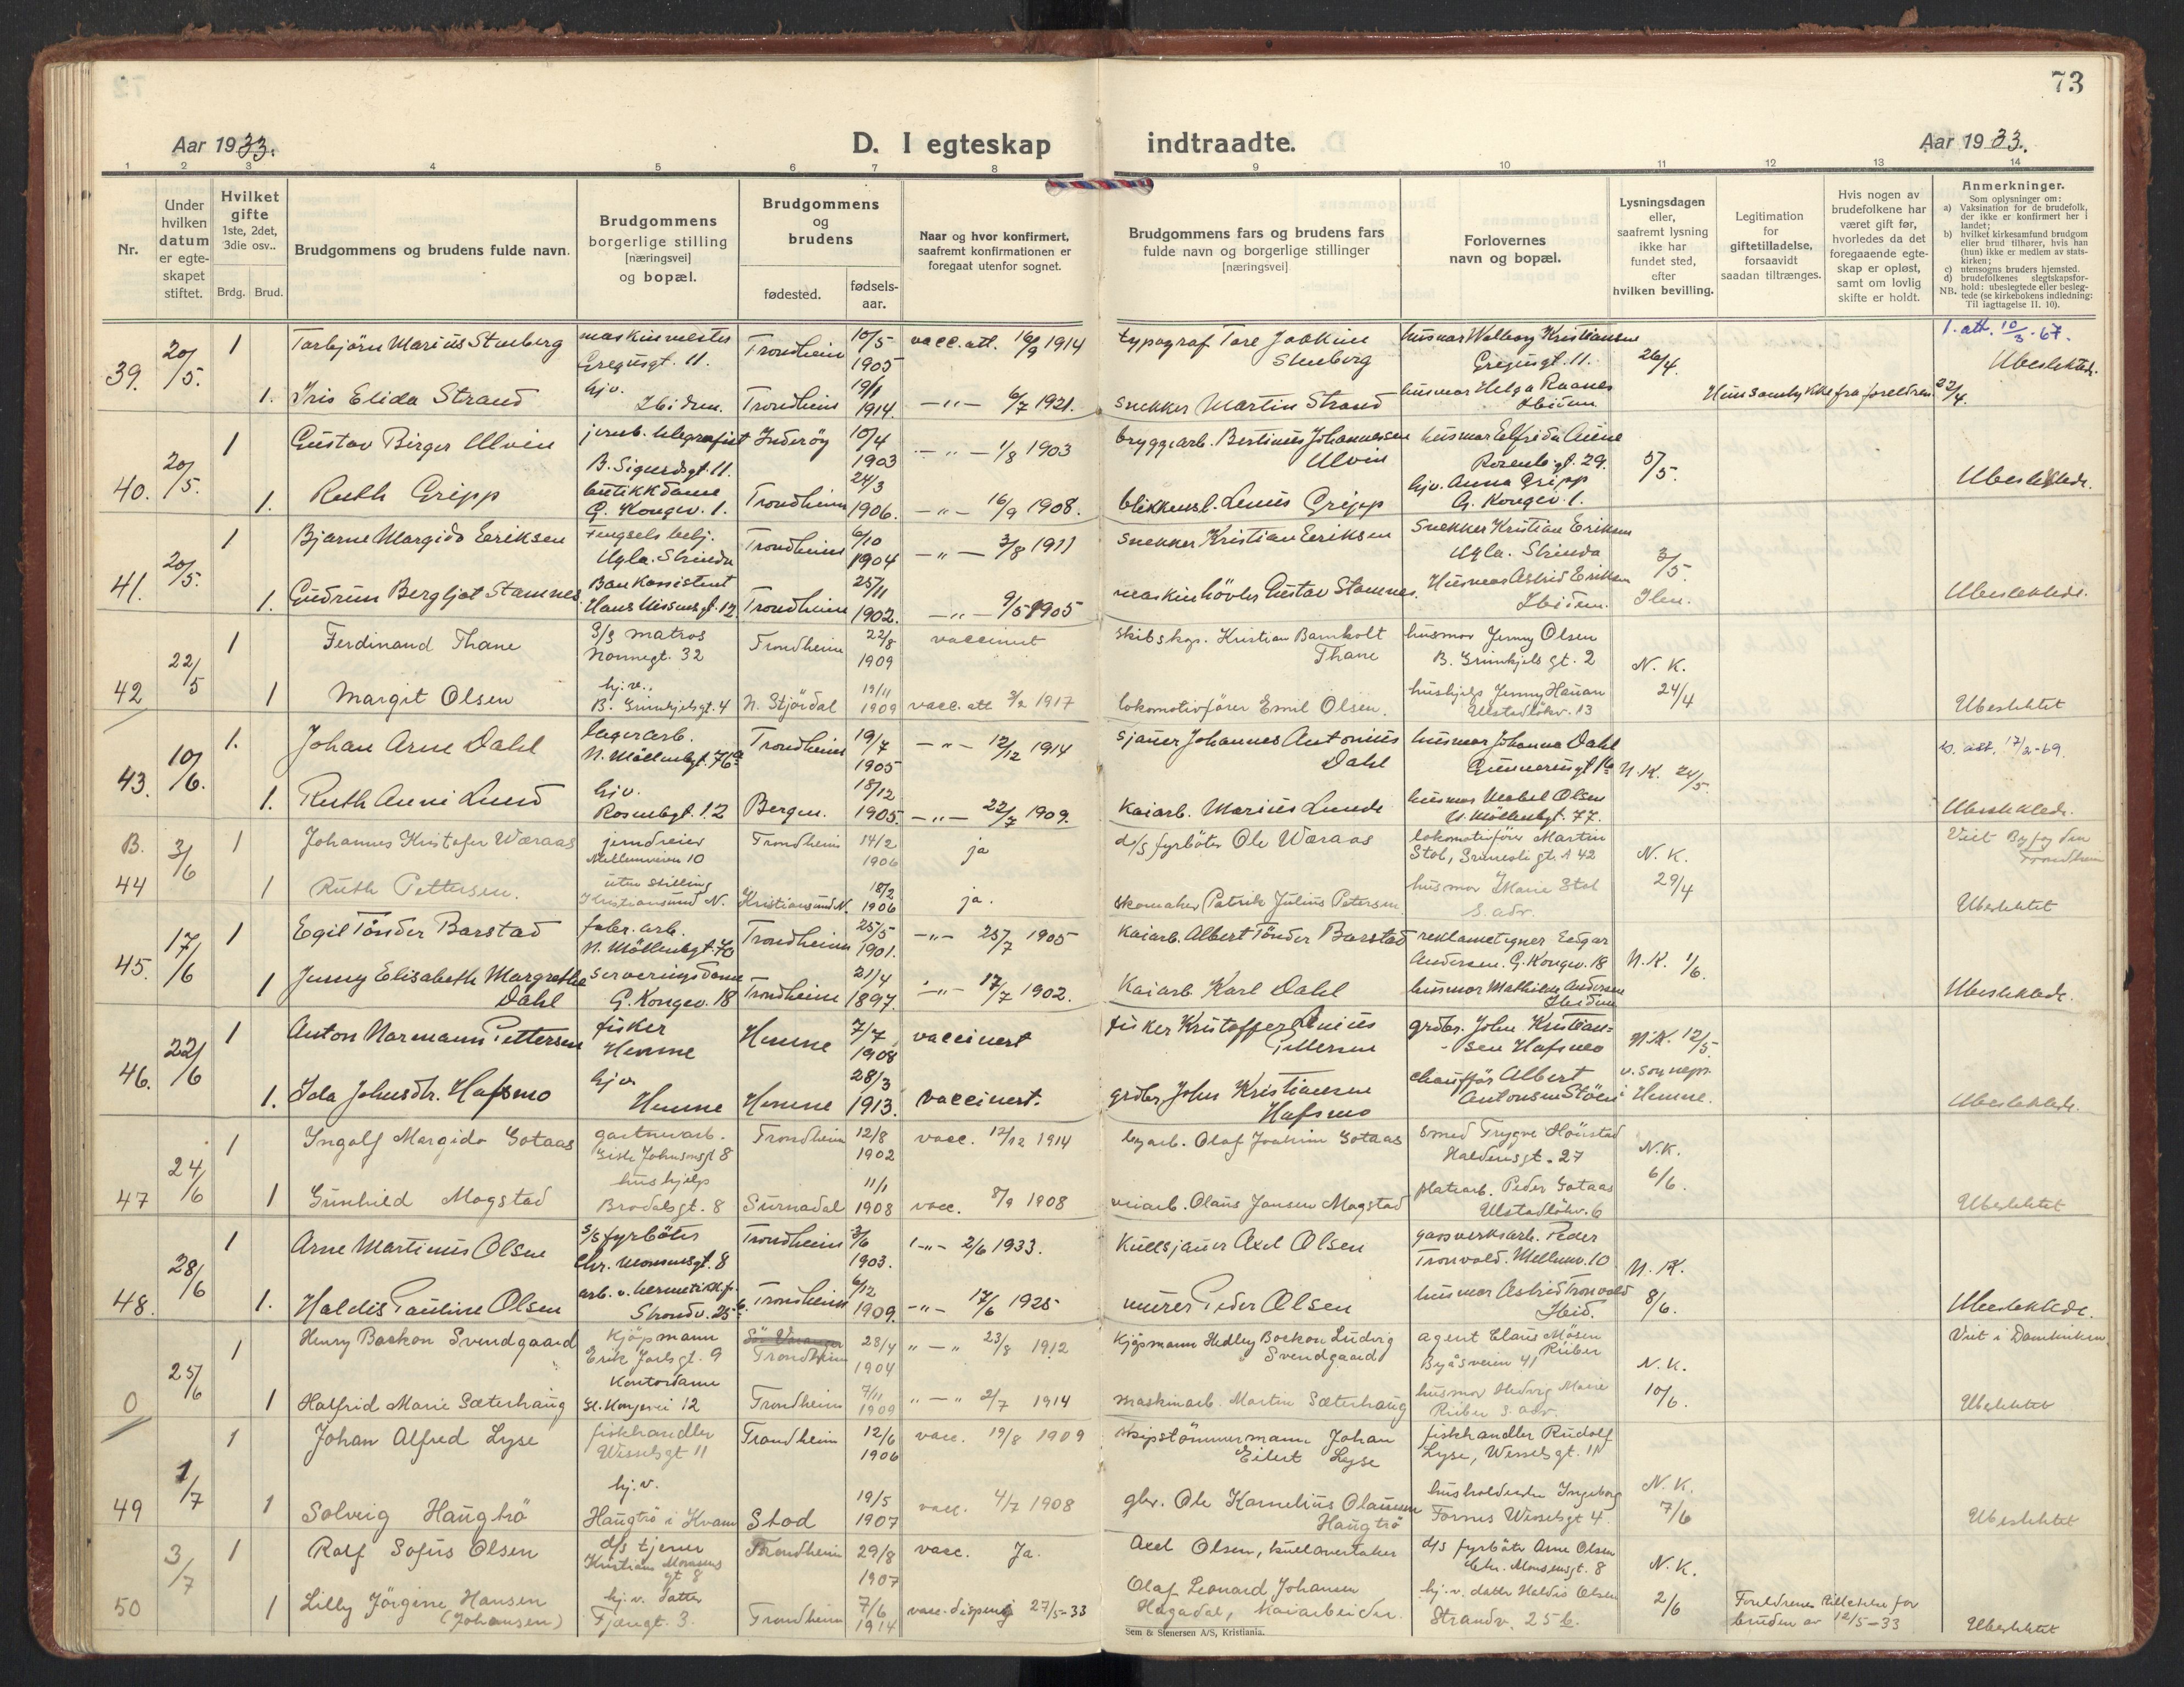 73
Aar 1933.
D. I egteskap
indtraadte.
Aar 1933.
1 2 3 4 5 6 7 8 9 10 11 12 13 14
Nr.
Under hvilken datum er egte-skapet stiftet.
Hvilket gifte 1ste, 2det, 3die osv..
Brdg. Brud.
Brudgommens og brudens fulde navn.
Brudgommens borgerlige stilling [næringsvei] og bopæl.
Brudgommens og brudens
fødested.
fødsels-aar.
Naar og hvor konfirmert, saafremt konfirmationen er foregaat utenfor sognet.
Brudgommens fars og brudens fars fulde navn og borgerlige stillinger [næringsvei]
Forlovernes navn og bopæl.
Lysningsdagen eller, saafremt lysning ikke har fundet sted, efter hvilken bevilling.
Legitimation for giftetilladelse, forsaavidt saadan tiltrænges.
Hvis nogen av brudefolkene har været gift før, hvorledes da det foregaaende egte-skap er opløst, samt om lovlig skifte er holdt.
Anmerkninger.
Som oplysninger om:
a) Vaksination for de brudefolk, der ikke er konfirmert her i landet;
b) hvilket kirkesamfund brudgom eller brud tilhører, hvis han (hun) ikke er medlem av stats-kirken;
c) utensogns bruders hjemsted.
d) brudefolkenes slegtskapsfor-hold: ubeslegtede eller besleg-tede (se kirkebokens indledning:
NB. Til iagttagelse II. 10).
39. 20/5. 1 Torbjörn Marius Stenberg maskinmester Trondheim 10/5 1905 vacc. att. 16/9 1914 typograf Tore Joakim Stenberg husmor Valborg Kristiansen Gregusgt. 11. 26/4. 1. att. 10/3-67.
Gregusgt. 11. Ubeslektede.
1. Iris Elida Strand hjv. Ibidem. Trondheim 19/1 1914. —"— 6/7 1921. snekker Martin Strand husmor Helga Raanes Ibidem Hun samtykke fra foreldrene 22/4.
40. 20/5. 1 Gustav Birger Ulvin jernb. telegrafist Inderöy 10/4 1903 —"— 1/8 1903 bryggearb. Bertinius Johannesen Ulvin husmor Elfrida Aune Rosenb.gt. 29. 5/5.
B. Sigurdsgt. 11. Ubeslektede.
1. Ruth Gripp butikkdame G. Kongev. 1. Trondheim 24/3 1906. —"— 16/9 1908. blikkensl. Linus Gripp hjv. Anna Gripp G. Kongev. 1.
41. 20/5. 1 Bjarne Margido Eriksen Fengselsbetj. Ugla. Strinda Trondheim 6/10 1904 —"— 3/8 1911 snekker Kristian Eriksen Snekker Kristian Eriksen Ugla. Strinda 3/5. Ilen.
1. Gudrun Bergljot Stamnes. Bankassistent Hans Nissensgt. 12. Trondheim 25/11 1902. —"— 9/5 1905 maskinhövler Gustav Stamnes. Husmor Astrid Eriksen Ibidem. Ubeslektede.
42 22/5 1 Ferdinand Thane S/S matros Nonnegt. 32 Trondheim 22/8 1909 vaccinert skibskgs. Kristian Barnholt Thane husmor Jenny Olsen B. Grimkjels gt. 2 N. K. 24/4
1 Margit Olsen hj.v., B. Grimkjelsgt. 4 N. Stjördal 19/11 1909 vacc. att 3/2 1917 lokomotivförer Emil Olsen. hushjelp Jenny Hanan Ulstadlökv. 13 Ubeslektet
43. 10/6. 1. Johan Arne Dahl lagerarb. N. Möllenbgt. 76a Trondheim 19/7 1905 —"— 12/12 1914 sjauer Johannes Antonius Dahl husmor Johanna Dahl Gunnerusgt 1b N. K. 24/5. b. att. 17/2-69.
1. Ruth Anni Lund hjv. Rosenbgt. 12 Bergen. 18/12 1905. —"— 22/7 1909. Kaiarb. Marius Lunde husmor Mabel Olsen N. Möllenbgt. 77. Ubeslektede.
B. 44 3/6 1 Johannes Kristofer Wæraas jerndreier Mellemveien 10 Trondheim 14/2 1906 ja d/s fyrböter Ole Wæraas lokomotivförer Martin Stol, gt. 42 N. K. 29/4 Viet Byfogden Trondheim
1 Ruth Pettersen. uten stilling Kristiansund N. Kristiansund N. 18/2 1906 ja. skomaker Patrik Julius Petersen. husmor Marie Stol s. adr. Ubeslektet
45. 17/6 1 Egil Tönder Barstad fabr. arb. N. Möllenbgt. 70 Trondheim 25/5 1901. —"— 25/7 1905 Kaiarb. Albert Tönder Barstad reklametegner Edgar Andersen. G. Kongev. 18 N. K. 1/6.
1 Jenny Elisabeth Margrethe Dahl serveringsdame G. Kongev. 18 Trondheim 21/4 1897. —"— 17/7 1902. Kaiarb. Karl Dahl husmor Mathilde Andersen Ibidem Ubeslektede.
46. 22/6 1 Anton Normann Pettersen fisker Hemne Hemne 7/7 1908 vaccinert fisker Kristoffer Linius Pettersen grdbr. John Kristiansen Hafsmo N. K. 12/5. v. sognepr. i Hemne.
1. Ida Johnsdtr. Hafsmo hjv Hemne Hemne 28/3 1913. vaccinert. grdbr. John Kristiansen Hafsmo chaufför Albert Antonsen Stöen Ubeslektede.
47 24/6 1 Ingolf Margido Gotaas gartnerarb. Gisle Johnsonsgt 8 Trondheim 12/8 1902 vacc. 12/12 1914 byarb. Olaf Joakim Gotaas smed Trygve Hönstad Haldensgt. 27 N. K. 6/6.
1 Gunhild Mogstad hushjelp Brodalsgt. 8 Surnadal 11/1 1908 vacc. 8/9 1908 veiarb. Olaus Jansen Mogstad platearb. Peder Gotaas Ulstadlökv. 6 Ubeslektet
48. 28/6 1 Arne Martinus Olsen s/s fyrböter Chr. Monsensgt. 8 Trondheim 3/6 1903. —"— 2/6 1933. Kullsjauer Axel Olsen gassverksarb. Peder Tronvold. Mellemv. 10 N. K. 8/6.
1. Haldis Pauline Olsen arb. v. hermetikkf. Strandv. 25b. Trondheim 6/12 1909. —"— 17/6 1925 murer Peder Olsen husmor Astrid Tronvold Ibid. Ubeslektede.
0 25/6 1 Henry Backon Svendgaard Kjöpmann Erik Jarlsgt. 9 Sör Varanger Trondheim 28/4 1904 "—" 23/8 1912 Kjöpmann Hedley Backon Ludvig Svendgaard agent Claus Mösen Riiber Byåsveien 41 N. K. 10/6. Viet i Domkirken
1 Halfrid Marie Sæterhaug Kontordame Gl. Kongevei 12 Trondheim 7/11 1909 "—" 2/7 1914 maskinarb. Martin Sæterhaug husmor Hedvig Marie Riiber s. adr. Ubeslektet
49 1/7 1 Johan Alfred Lyse fiskhandler Wesselsgt 11 Trondheim 12/6 1906 vacc. 19/8 1909 skipstömmermann Johan Eilert Lyse fiskhandler Rudolf Lyse, Wesselsgt. 11 N. K. 7/6
1 Solveig Haugtrö hj.v. Haugtrö i Kvam Stod 19/5 1907 vacc. 4/7 1908 gbr. Ole Kornelius Olaussen Haugtrö husholderske Ingeborg Fornes Wesselsgt 4. Ubeslektet
50 3/7 1 Rolf Sofus Olsen d/s tjener Kristian Monsens gt 8 Trondheim 29/8 1907 vacc. Ja. Axel Olsen, kullovertaker d/s fyrböter Arne Olsen Chr. Monsensgt. 8 N. K. 2/6
1 Lilly Jörgine Hansen (Johansen) hj.v. datter Fjæregt. 3. Trondheim 7/6 1914 vacc. dispens 27/5-33 Olaf Leonard Johansen Hagadal, kaiarbeider. hj.v. datter Haldis Olsen Strandv. 25 b. Foreldrenes tilladelse for bruden av 12/5-33 Ubeslektet
Sem & Stenersen A/S, Kristiania.